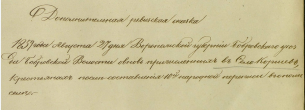 Дополнительная ревизская сказка
1859 года Августа 27 дня Воронежской губернии Бобровского уез
да Бобровской Волости вновь причисленных въ Село Коршево,
крестьянах после составления 10й народной переписи